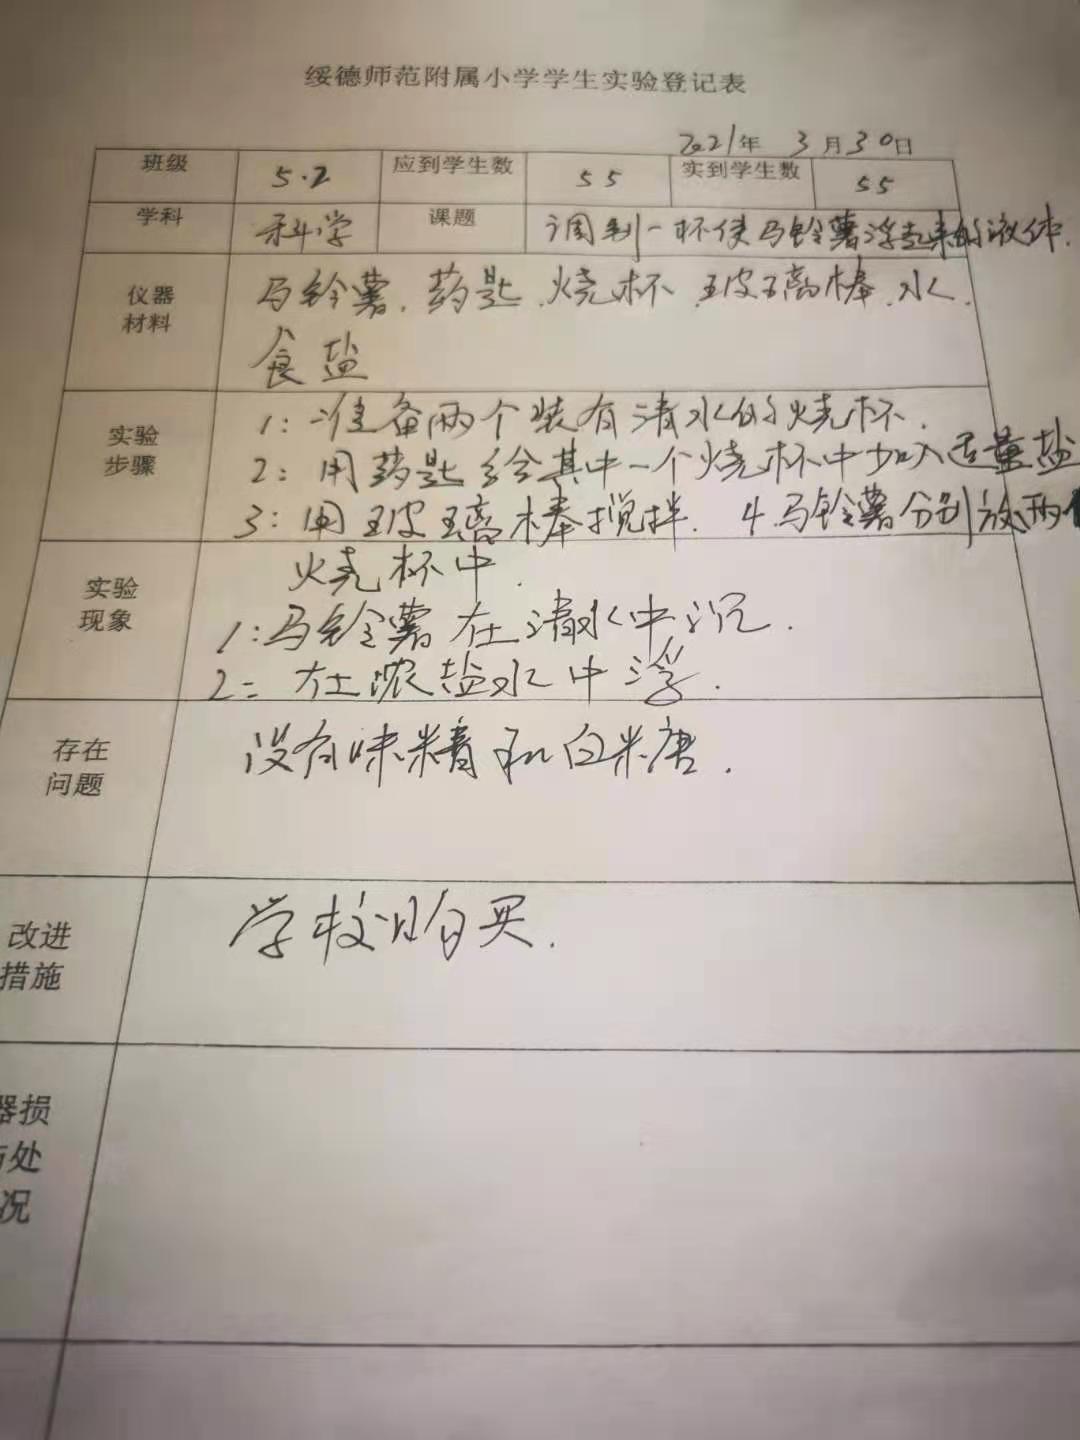 绥德师范附属小学学生实验登记表
2021年 3月30日
班级 5.2 应到学生数 55 实到学生数 55
学科 科学 课题 调制一杯使马铃薯浮起来的液体.
仪器材料 马铃薯.药匙.烧杯.玻璃棒.水.
食盐
实验步骤 1:准备两个装有清水的烧杯.
2:用药匙给其中一个烧杯中加入适量盐
3:用玻璃棒搅拌. 4.马铃薯分别放两个
烧杯中.
实验现象 1:马铃薯在清水中沉.
2:在浓盐水中浮.
存在问题 没有味精和白米唐.
改进措施 学校购买.
器损
处
况